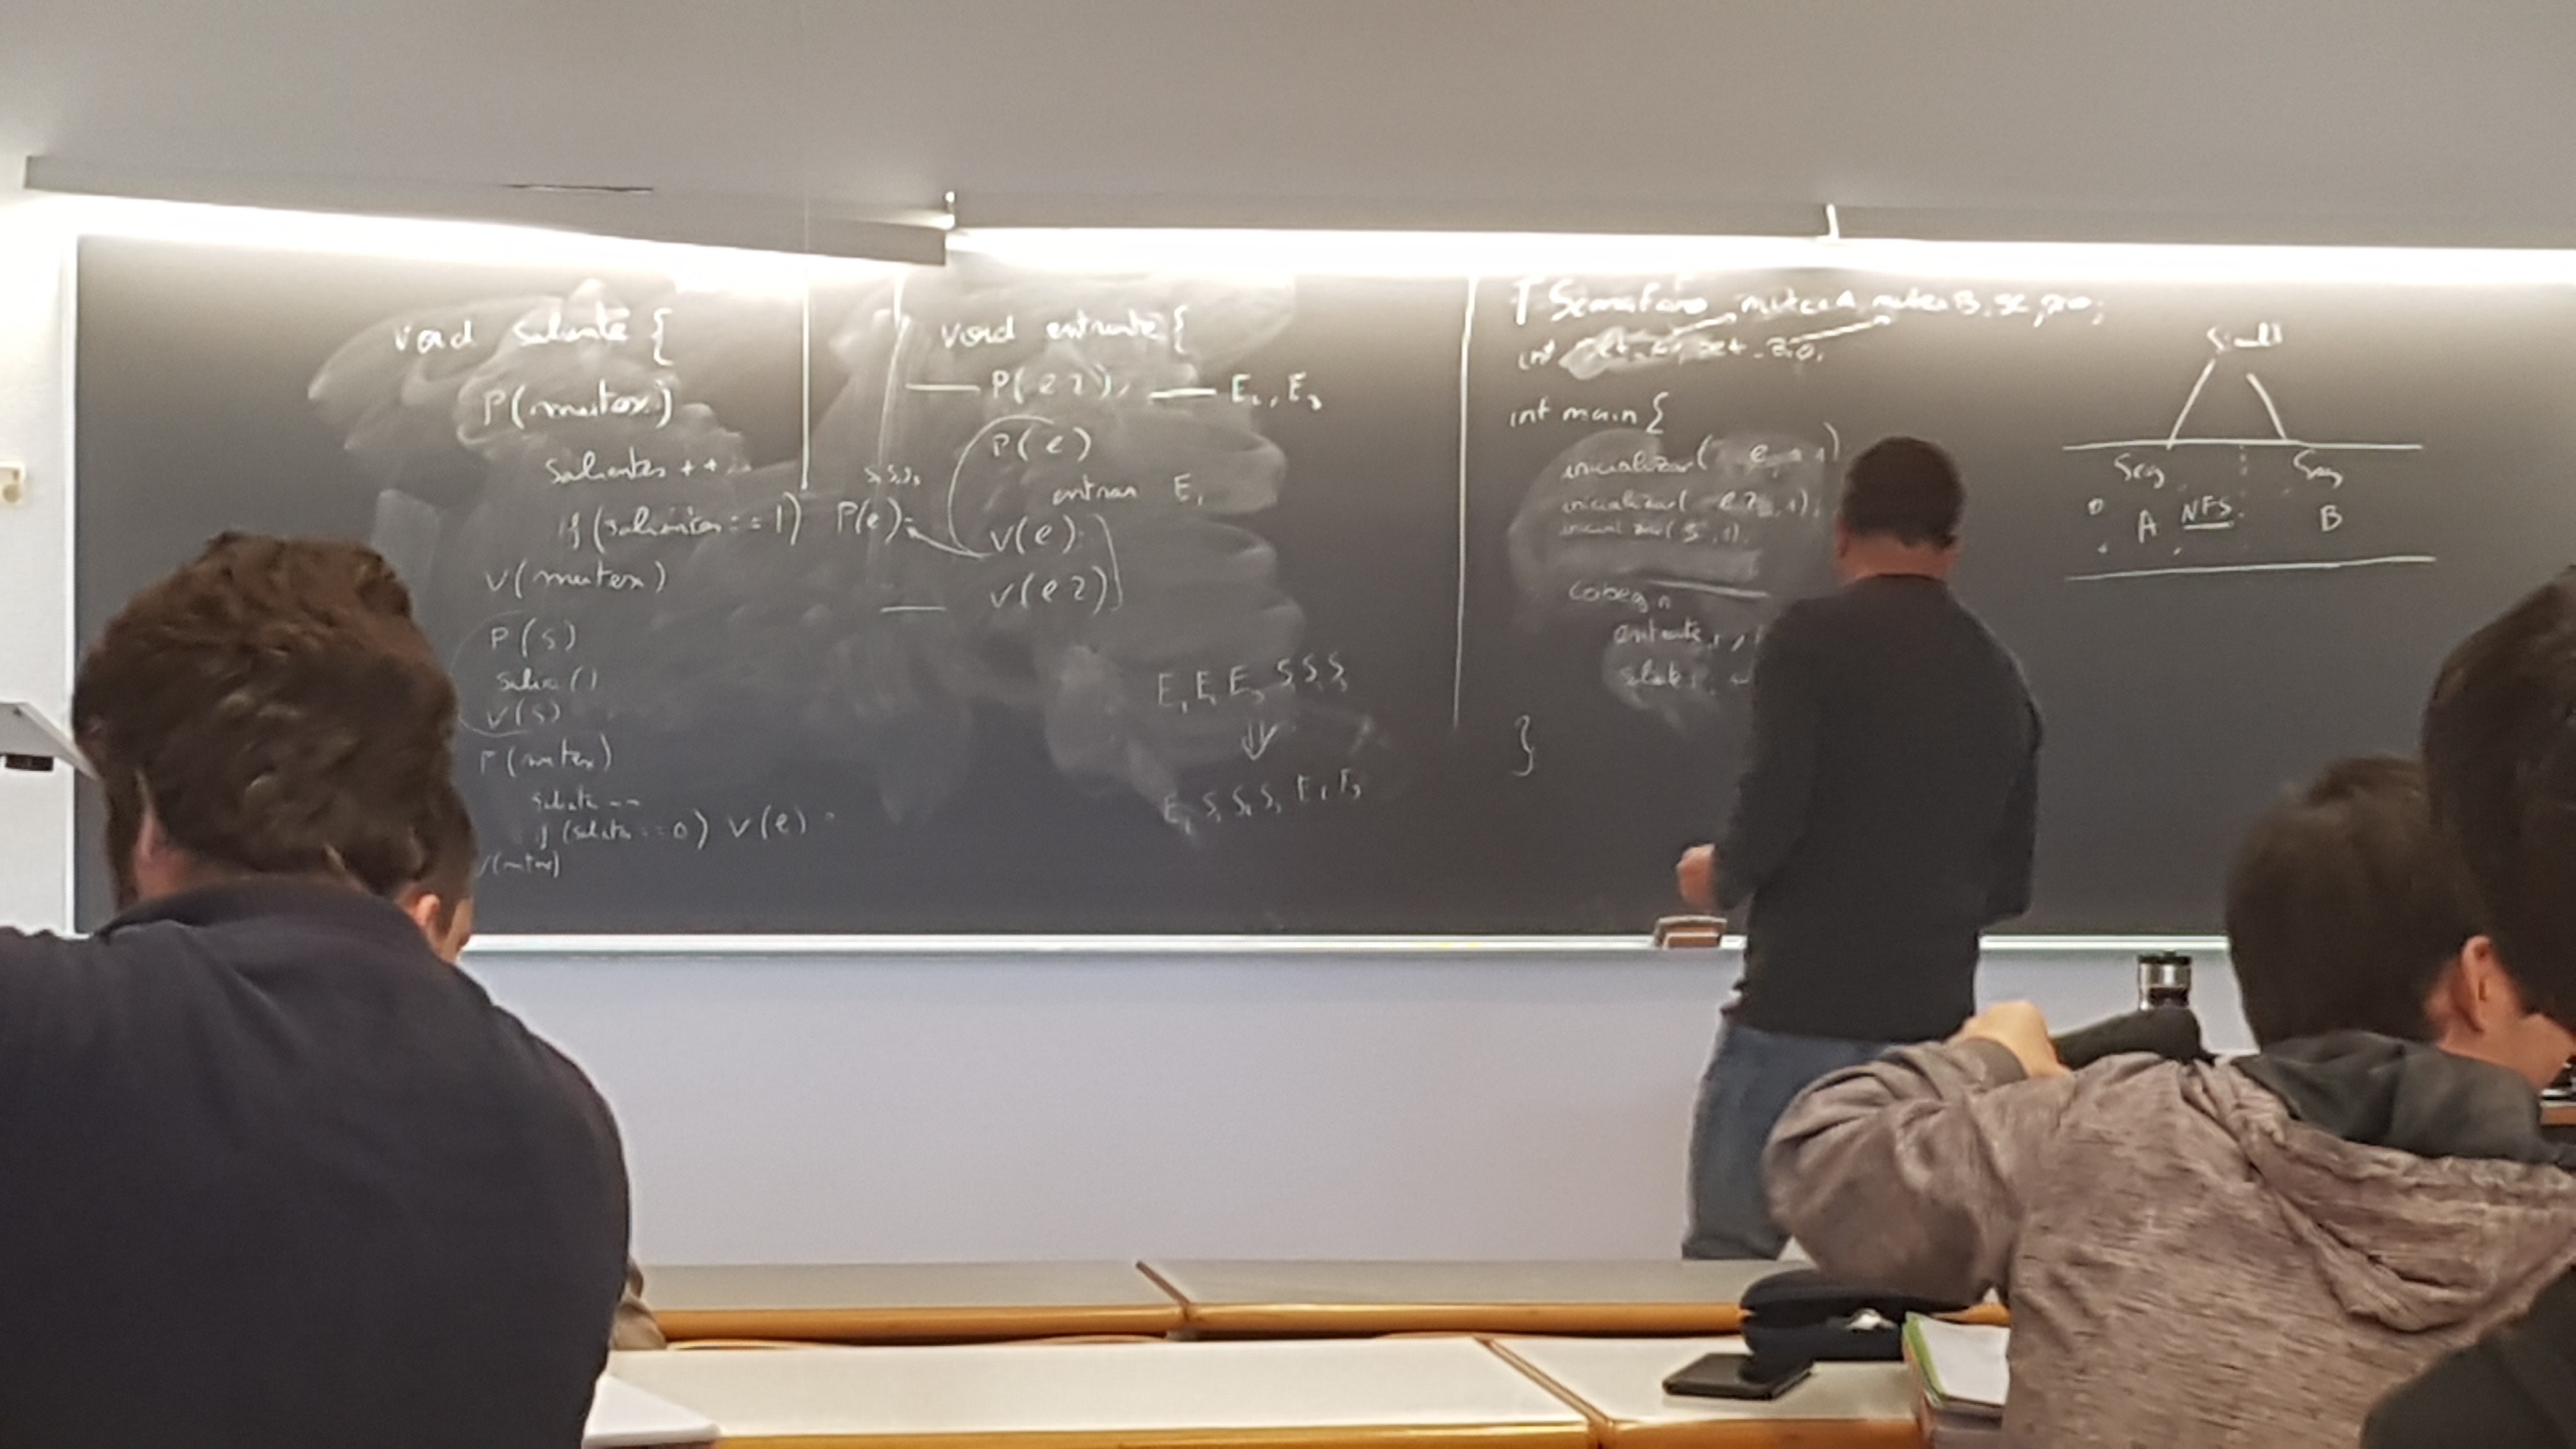 void saliente {
P(mutex)
Salientes ++
if (salientes == 1) P(e)
V(mutex)
P(s)
salir()
V(s)
P(mutex)
saliente --
if (saliente == 0) V(e)
V(mutex)
void entrante {
P(e2); E₂, E₃
P(e)
entran E₁
S₁S₂S₃
V(e)
V(e2)
E₁ E₂ E₃ S₁ S₂ S₃
⇓
E₁ S₁ S₂ S₃ E₂ E₃
TSemaforo mutexA, mutexB,
int
int main {
inicializar( e, 1)
inicializar( e2, 1);
inicializar( s, 1);
cobegin
entrante
}
Seg Seg
A NFS B